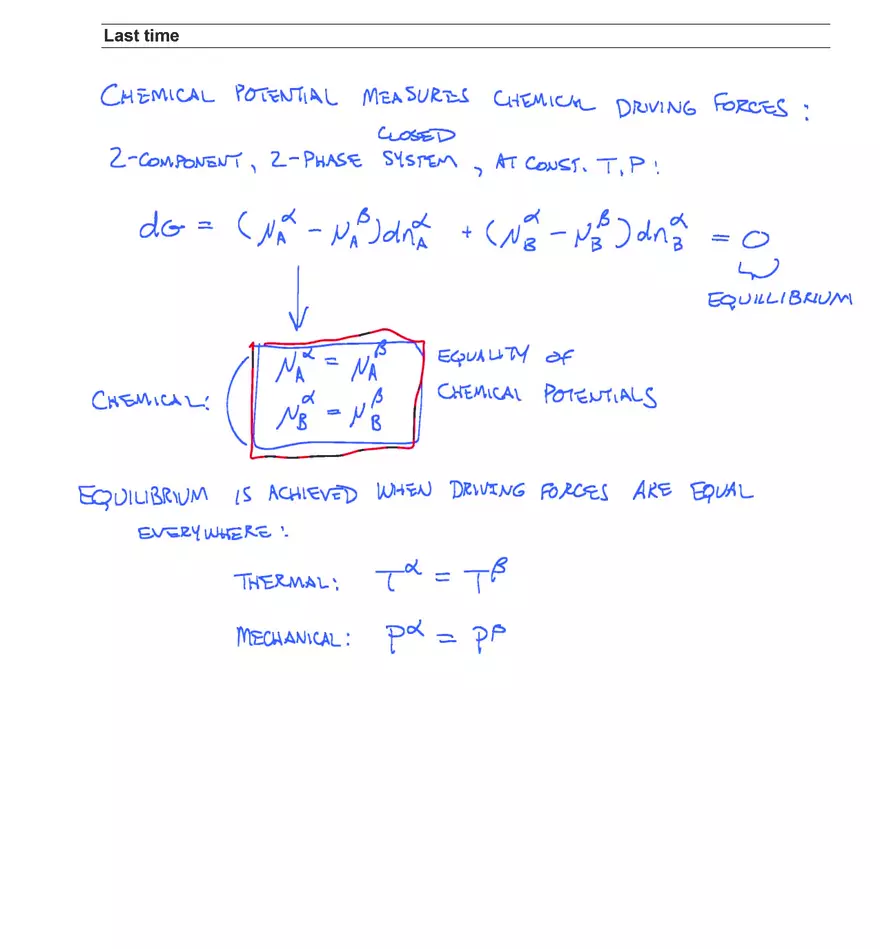 Last time
CHEMICAL POTENTIAL MEASURES CHEMICAL DRIVING FORCES:
CLOSED
2-COMPONENT, 2-PHASE SYSTEM, AT CONST. T, P:
dG = (μ_A^α - μ_A^β)dn_A^α + (μ_B^α - μ_B^β)dn_B^α = 0
EQUILLIBRIUM
μ_A^α = μ_A^β EQUALITY OF
CHEMICAL: μ_B^α = μ_B^β CHEMICAL POTENTIALS
EQUILIBRIUM IS ACHIEVED WHEN DRIVING FORCES ARE EQUAL
EVERYWHERE:
THERMAL: T^α = T^β
MECHANICAL: P^α = P^β